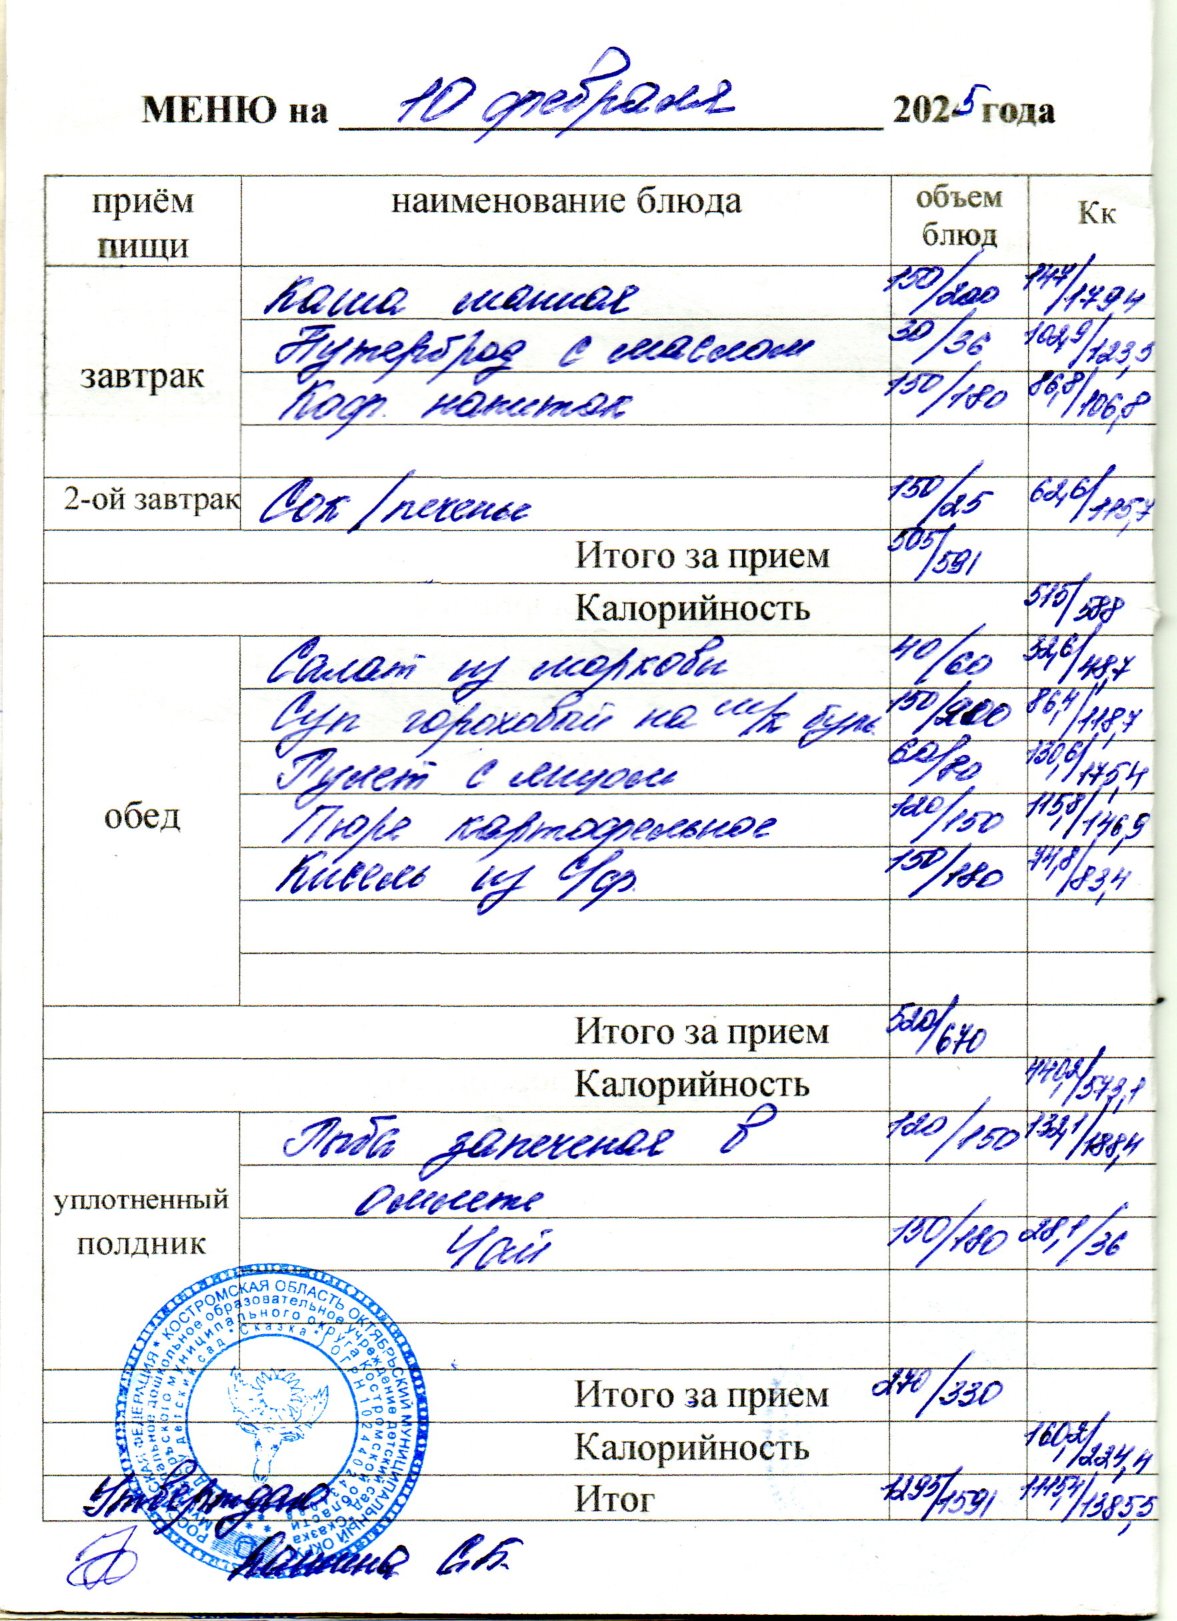 МЕНЮ на 10 февраля 2025 года
приём пищи наименование блюда объем блюд Кк
завтрак
Каша манная 150/200 147/179,4
Бутерброд с маслом 30/36 102,9/123,5
Коф. напиток 150/180 86,8/106,8
2-ой завтрак Сок/печенье 150/25 62,6/115,7
Итого за прием 505/591
Калорийность 515/588
обед
Салат из моркови 40/60 32,6/48,7
Суп гороховый на м/к буль. 150/200 86,4/118,7
Рулет с яйцом 60/80 130,6/175,4
Пюре картофельное 120/150 115,8/146,9
Кисель из с/ф. 150/180 74,8/83,4
Итого за прием 520/670
Калорийность 440,2/573,1
уплотненный полдник
Рыба запеченая в 120/150 132,1/188,4
омлете
Чай 150/180 28,1/36
Итого за прием 270/330
Калорийность 160,2/224,4
Итог 1295/1591 1115,4/1385,5
Утверждаю
С.Б.
РОССИЙСКАЯ ФЕДЕРАЦИЯ * КОСТРОМСКАЯ ОБЛАСТЬ ОКТЯБРЬСКИЙ МУНИЦИПАЛЬНЫЙ ОКРУГ
дошкольное образовательное учреждение детский сад "Сказка"
муниципального округа Костромской области
детский сад "Сказка"